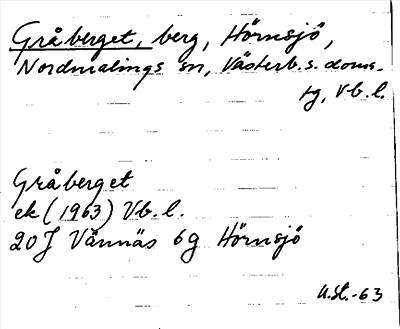 Gråberget, berg, Hörnsjö,
Nordmalings sn, Västerb. s. doms-
tg, Vb. l.
Gråberget
ek (1963) Vb. l.
20J Vännäs 6g Hörnsjö
U.St.-63